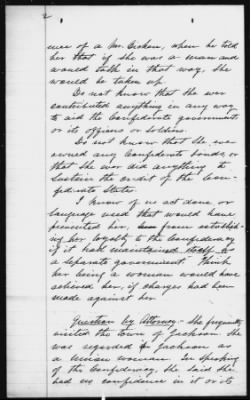 2
ence of a Mr. Croken, when he told
her that if she was a man and
would talk in that way, she
would be taken up.
Do not know that she ever
contributed anything in any way
to aid the Confederate government
or its officers or soldiers.
Do not know that she ever
owned any Confederate bonds, or
that she ever did anything to
sustain the credit of the Con-
federate States.
I know of no act done, or
language used that would have
prevented her, from establish-
ing her loyalty to the Confederacy
if it had maintained itself as
a separate government. Think
her being a woman would have
relieved her, if charges had been
made against her.
Question by Attorney. She frequently
visited the town of Jackson. She
was regarded in Jackson as
a Union woman. In speaking
of the Confederacy, she said she
had no confidence in it or its